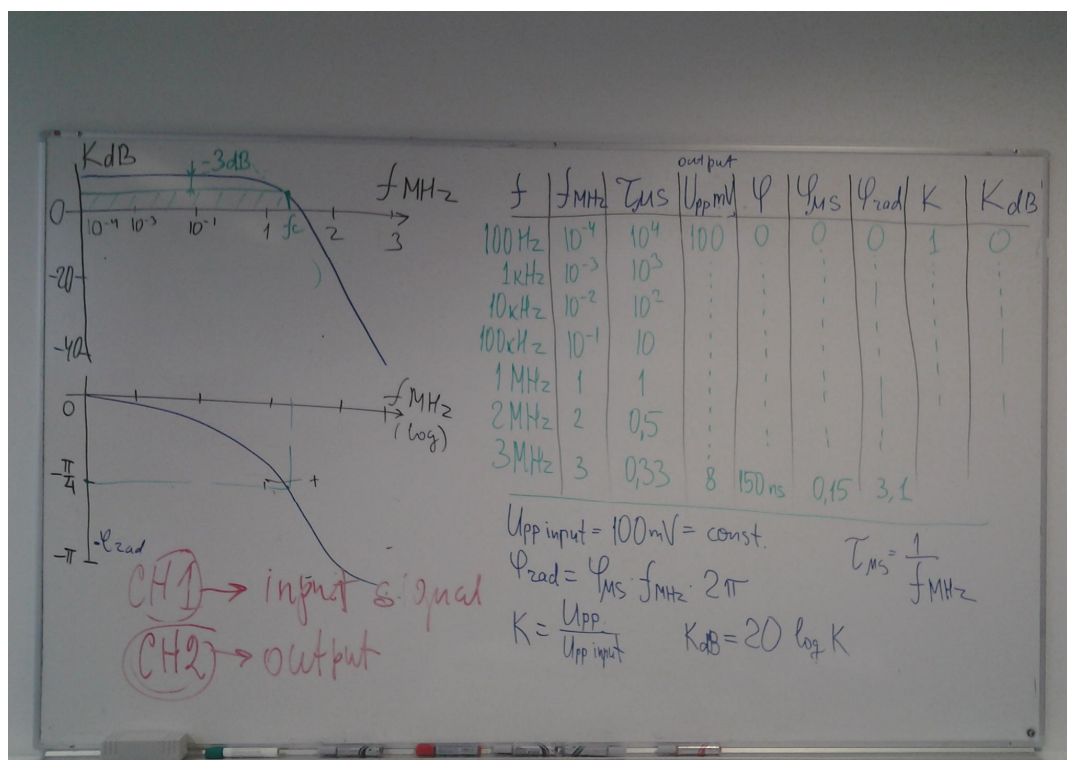 KdB
-3dB
f MHz
0
10⁻⁴ 10⁻³ 10⁻¹ 1 fc 2 3
-20
-40
f MHz
(log)
0
-π/4
-π
-φrad
CH1 → input signal
CH2 → output
output
f fMHz τμs UppmV φ φμs φrad K KdB
100Hz 10⁻⁴ 10⁴ 100 0 0 0 1 0
1кHz 10⁻³ 10³
10кHz 10⁻² 10²
100кHz 10⁻¹ 10
1 MHz 1 1
2MHz 2 0,5
3MHz 3 0,33 8 150ns 0,15 3,1
Upp input = 100mV = const.
φrad = φμs · fMHz · 2π
τμs = 1/fMHz
K = Upp/Upp input
KdB = 20 log K